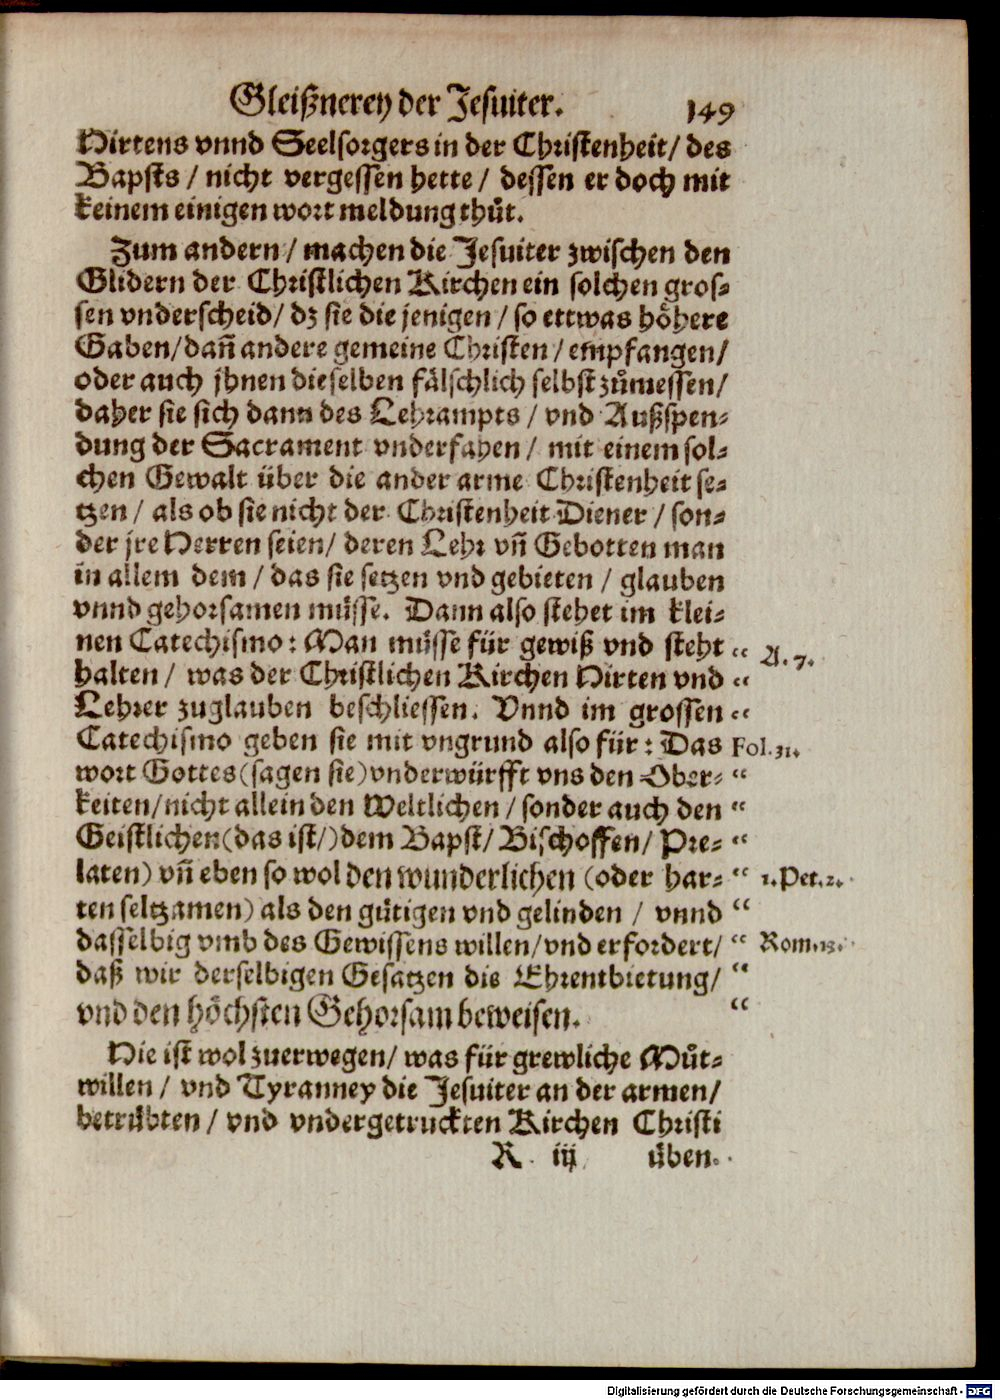 Gleißnerey der Jesuiter. 149
Hirtens vnnd Seelsorgers in der Christenheit/ des
Bapsts / nicht vergessen hette / dessen er doch mit
keinem einigen wort meldung thůt.
Zum andern / machen die Jesuiter zwischen den
Glidern der Christlichen Kirchen ein solchen gros-
sen vnderscheid/ dz sie die jenigen / so ettwas höhere
Gaben/ dañ andere gemeine Christen / empfangen/
oder auch jhnen dieselben fälschlich selbst zůmessen/
daher sie sich dann des Lehrampts / vnd Außspen-
dung der Sacrament vnderfahen / mit einem sol-
chen Gewalt über die ander arme Christenheit se-
tzen / als ob sie nicht der Christenheit Diener / son-
der jre Herren seien/ deren Lehr vñ Gebotten man
in allem dem / das sie setzen vnd gebieten / glauben
vnnd gehorsamen müsse. Dann also stehet im klei-
nen Catechismo: Man müsse für gewiß vnd steht “ A. 7.
halten / was der Christlichen Kirchen Hirten vnd “
Lehrer zuglauben beschliessen. Vnnd im grossen “
Catechismo geben sie mit vngrund also für: Das Fol. 31.
wort Gottes (sagen sie) vnderwürfft vns den Ober- “
keiten/ nicht allein den Weltlichen / sonder auch den “
Geistlichen (das ist/) dem Bapst/ Bischoffen/ Pre- “
laten) vñ eben so wol den wunderlichen (oder har- “ 1. Pet. 2.
ten seltzamen) als den gütigen vnd gelinden / vnnd “
dasselbig vmb des Gewissens willen/ vnd erfordert/ “ Rom. 13.
daß wir derselbigen Gesatzen die Ehrentbietung/ “
vnd den höchsten Gehorsam beweisen. “
Hie ist wol zuerwegen/ was für grewliche Můt-
willen / vnd Tyranney die Jesuiter an der armen/
betrübten / vnd vndergetruckten Kirchen Christi
K iij üben.
Digitalisierung gefördert durch die Deutsche Forschungsgemeinschaft - DFG